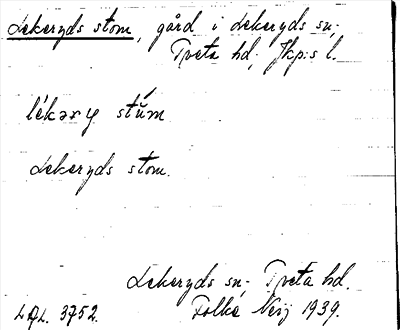 Lekeryds stom, gård i Lekeryds sn,
Tveta hd, Jkp:s l.
lékəry stŭm
Lekeryds stom.
Lekeryds sn, Tveta hd.
LAL. 3752. Folke Neij 1939.